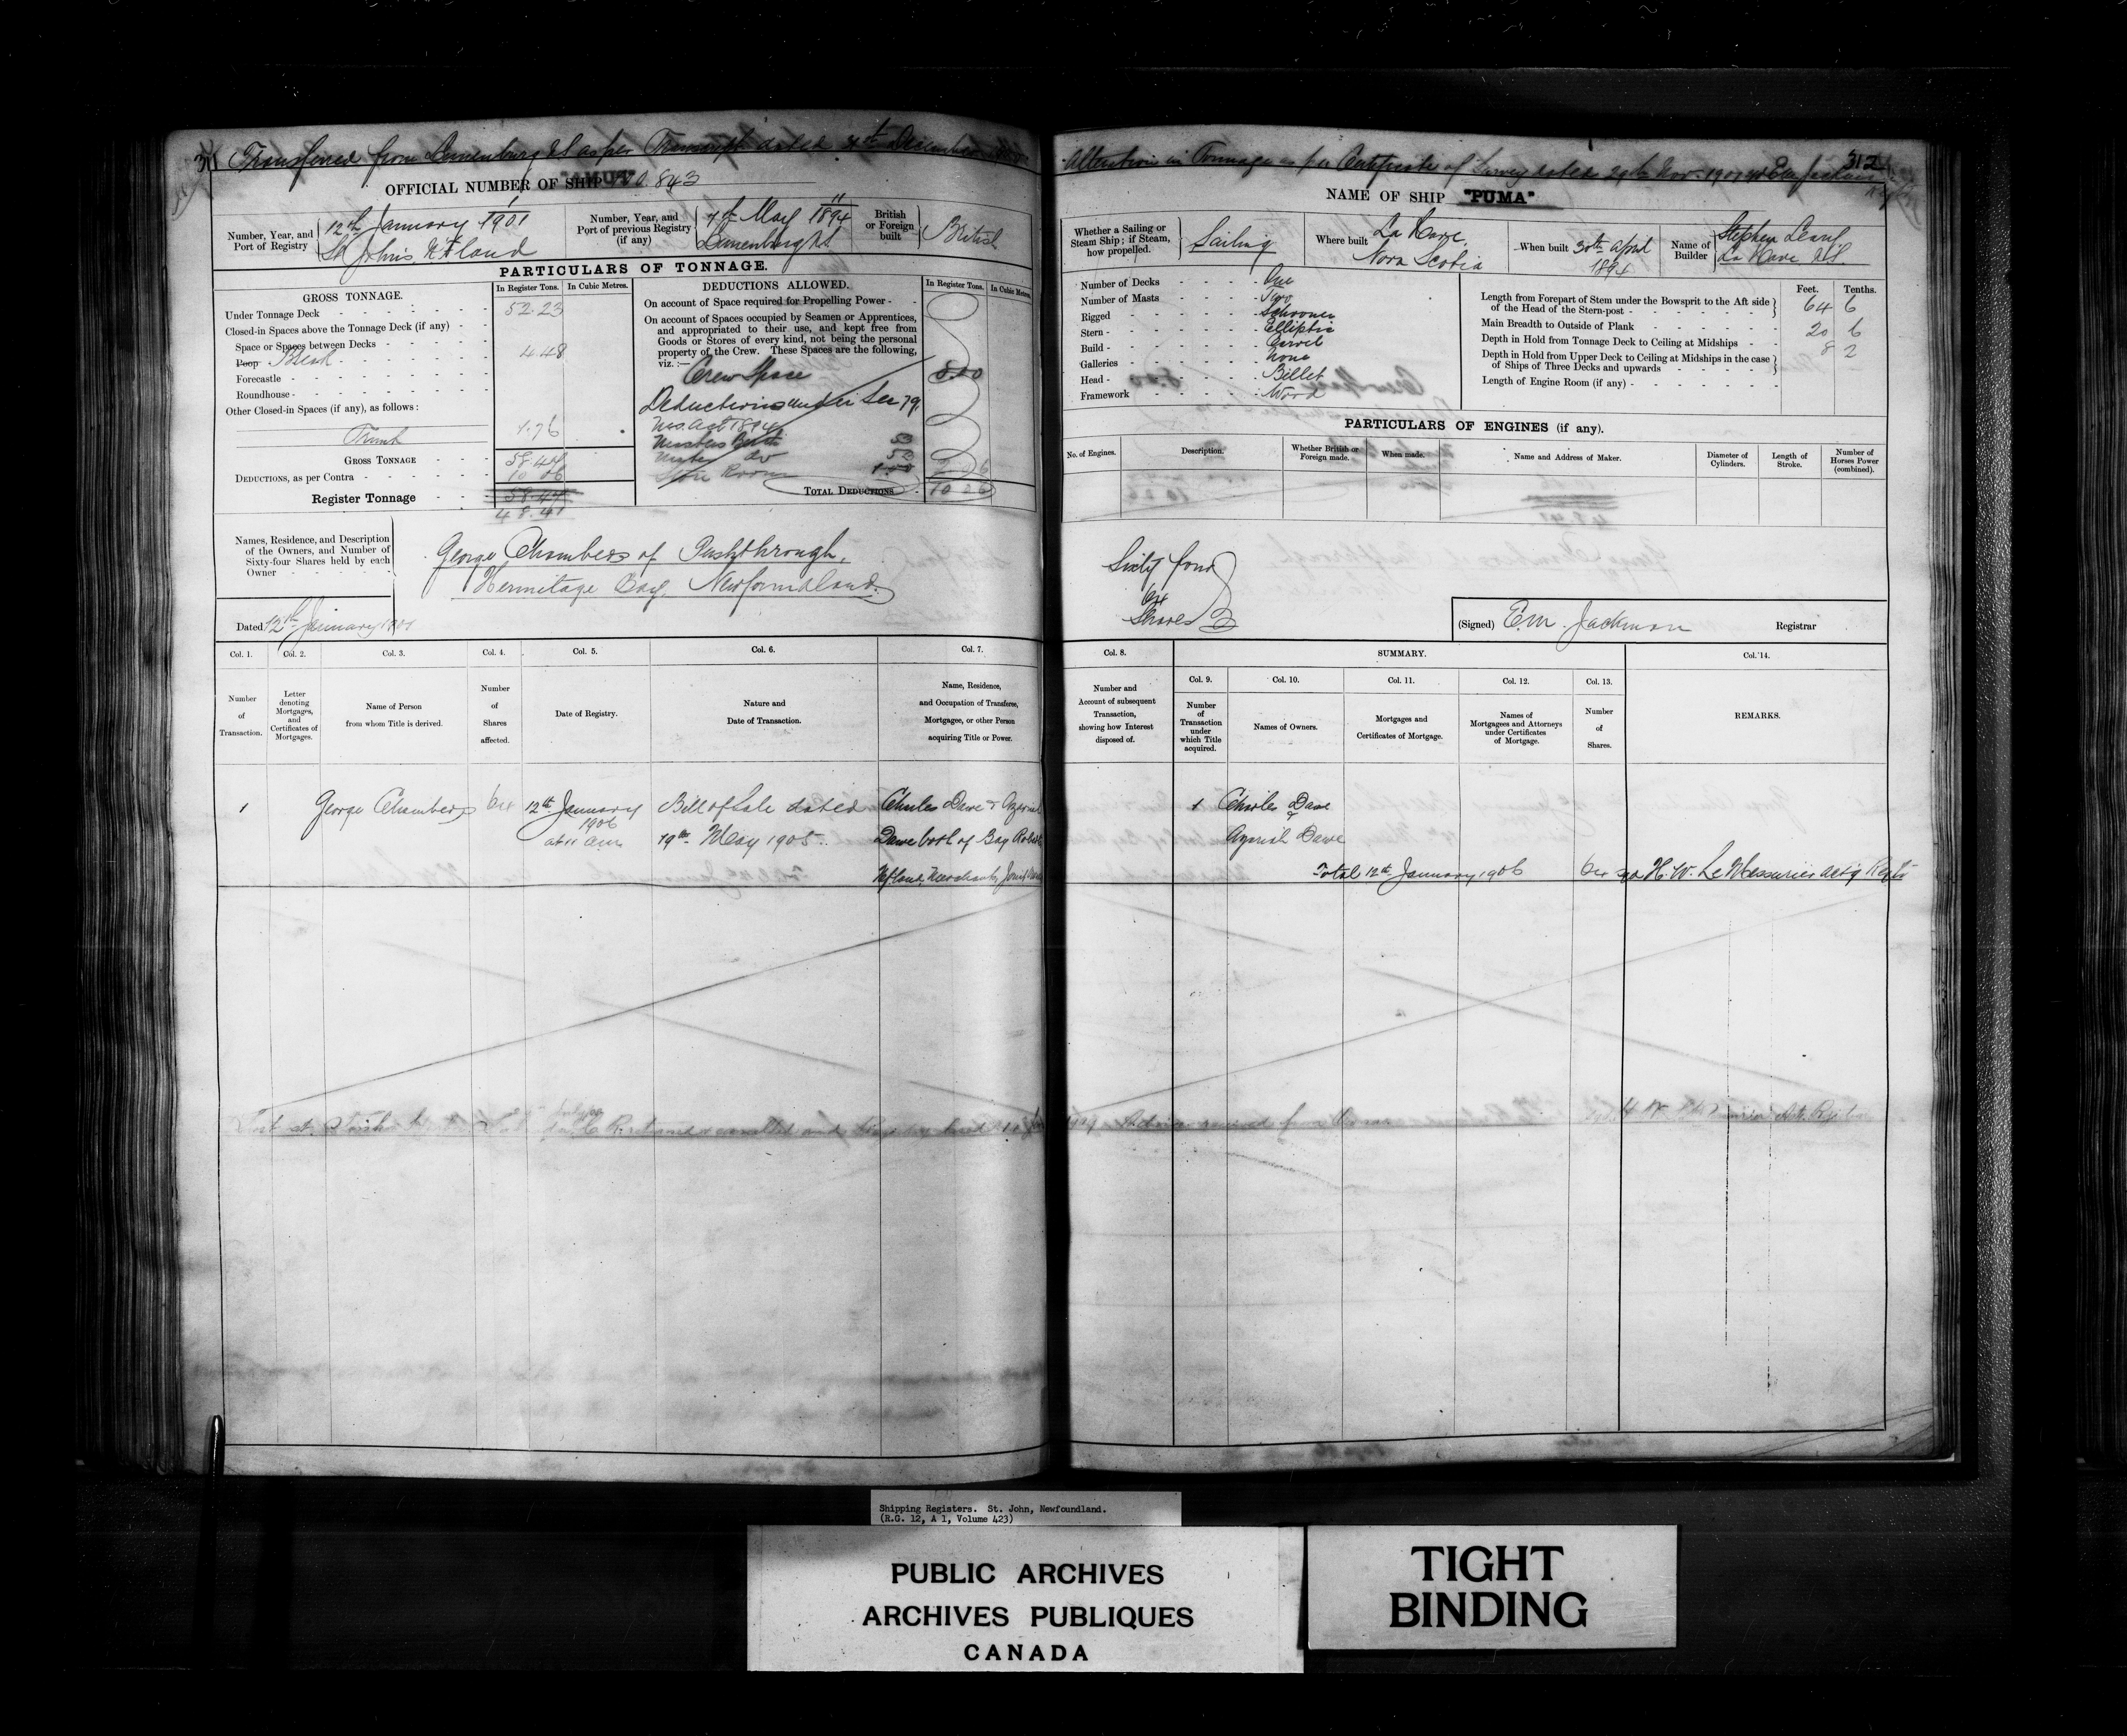 311 Transferred from Lunenburg NS as per Transcript dated 31st December
OFFICIAL NUMBER OF SHIP 100.843
Number, Year, and Port of Registry
1
12th January 1901
St Johns Nfland
Number, Year, and Port of previous Registry (if any)
11
7th May 1894
Lunenburg NS
British or Foreign built
British
PARTICULARS OF TONNAGE.
GROSS TONNAGE.
In Register Tons. In Cubic Metres.
Under Tonnage Deck 52.23
Closed-in Spaces above the Tonnage Deck (if any)
Space or Spaces between Decks
Poop Break 4.48
Forecastle
Roundhouse
Other Closed-in Spaces (if any), as follows:
Trunk 1.76
GROSS TONNAGE 58.47
DEDUCTIONS, as per Contra 10 06
Register Tonnage 58.47
48.41
DEDUCTIONS ALLOWED.
In Register Tons. In Cubic Metres.
On account of Space required for Propelling Power
On account of Spaces occupied by Seamen or Apprentices,
and appropriated to their use, and kept free from
Goods or Stores of every kind, not being the personal
property of the Crew. These Spaces are the following,
viz.:—
Crew Space 8.00
Deductions under Sec 79.
M.S. Act 1894
Masters Berth 53
Mates do 53
Store Room 1.00
TOTAL DEDUCTIONS
Names, Residence, and Description
of the Owners, and Number of
Sixty-four Shares held by each
Owner
George Chambers of Pushthrough,
Hermitage Bay, Newfoundland.
Dated 12th January 1901
Col. 1. Col. 2. Col. 3. Col. 4. Col. 5. Col. 6. Col. 7.
Number of Transaction.
Letter denoting Mortgages, and Certificates of Mortgages.
Name of Person from whom Title is derived.
Number of Shares affected.
Date of Registry.
Nature and Date of Transaction.
Name, Residence, and Occupation of Transferee, Mortgagee, or other Person acquiring Title or Power.
1 George Chambers 64 12th January 1906 at 11 am
Bill of Sale dated
19th May 1905.
Charles Dawe &
Dawe both of Bay
Nfland, Merchants
Alteration in Tonnage as per Certificate of Survey dated 29th Nov. 1907 312
NAME OF SHIP "PUMA"
Whether a Sailing or Steam Ship; if Steam, how propelled.
Sailing
Where built
La Have,
Nova Scotia
When built 30th April
1894
Name of Builder
Stephen
La Have N.S.
Number of Decks One
Number of Masts Two
Rigged Schooner
Stern Elliptic
Build Carvel
Galleries None
Head Billet
Framework Wood
Feet. Tenths.
Length from Forepart of Stem under the Bowsprit to the Aft side of the Head of the Stern-post 64 6
Main Breadth to Outside of Plank 20 6
Depth in Hold from Tonnage Deck to Ceiling at Midships 8 2
Depth in Hold from Upper Deck to Ceiling at Midships in the case of Ships of Three Decks and upwards
Length of Engine Room (if any)
PARTICULARS OF ENGINES (if any).
No. of Engines.
Description.
Whether British or Foreign made.
When made.
Name and Address of Maker.
Diameter of Cylinders.
Length of Stroke.
Number of Horses Power (combined).
Sixty four
64
Shares
(Signed) E.M. Jackman Registrar
Col. 8. SUMMARY. Col. 14.
Col. 9. Col. 10. Col. 11. Col. 12. Col. 13.
Number and Account of subsequent Transaction, showing how Interest disposed of.
Number of Transaction under which Title acquired.
Names of Owners.
Mortgages and Certificates of Mortgage.
Names of Mortgagees and Attorneys under Certificates of Mortgage.
Number of Shares.
REMARKS.
1 Charles Dawe
&
Azariah Dawe
Total 12th January 1906 64 sgd H. W. LeMessurier Actg Regr
Lost at
1909 Advice received from Owner
Shipping Registers. St. John, Newfoundland.
(R.G. 12, A 1, Volume 423)
PUBLIC ARCHIVES
ARCHIVES PUBLIQUES
CANADA
TIGHT
BINDING